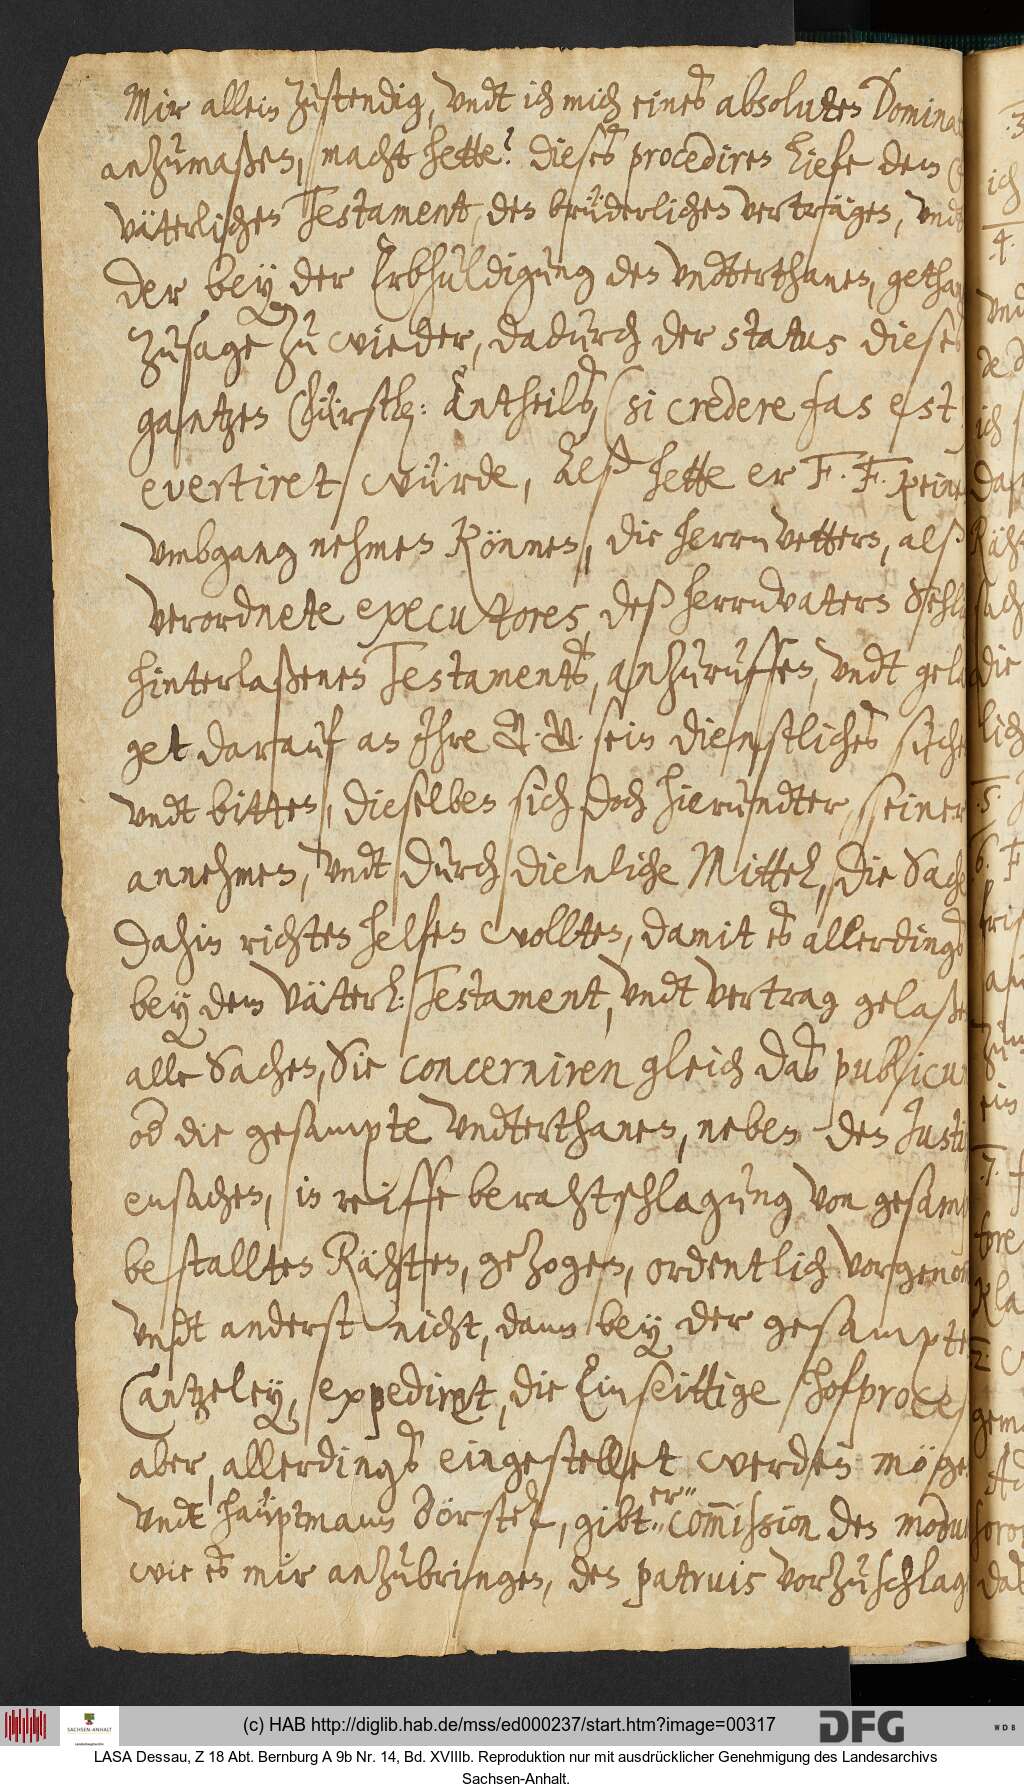 Mir allein zustendig, vndt ich mich eines absoluten Domina
anzumaßen, macht hette? dieses procediren liefe dem
väterlichen Testament, den brüderlichen verträgen, vndt
der bey der Erbhuldigung den vndterthanen, gethan
zusage zu wieder, dadurch der status dieses
gantzen Fürstl: Antheils, (si credere fas est
evertiret würde, Alß hette er F. F. keinen
vmbgang nehmen können, die herrn vettern, alß
verordnete executores, deß herrnvaters Sehl
hinterlaßenen Testaments, anzuruffen, vndt gela
get darauf an Ihre sein dienstliches suchen
vndt bitten, dieselben sich doch hierundter, seiner
annehmen, vndt durch dienliche Mittel, die Sache
dahin richten helfen wollten, damit es allerdings
bey dem Väterl: Testament, vndt Vertrag gelaße
alle Sachen, Sie concerniren gleich das publicum
od die gesampte vndterthanen, neben den Justi
ensachen, in reiffe berahtschlagung von gesam
bestallten Rähten, gezogen, ordentlich vorgenom
vndt anderst nicht, dann bey der gesampten
Cantzeley, expediret, die Einseittige hofproces
aber, allerdings eingestellet werden mögen
vndt hauptmann Börstel, gibt er commission den modum
wie es mir anzubringen, den patruis vorzuschlag
(c) HAB http://diglib.hab.de/mss/ed000237/start.htm?image=00317
SACHSEN-ANHALT
DFG
WDB
LASA Dessau, Z 18 Abt. Bernburg A 9b Nr. 14, Bd. XVIIIb. Reproduktion nur mit ausdrücklicher Genehmigung des Landesarchivs
Sachsen-Anhalt.